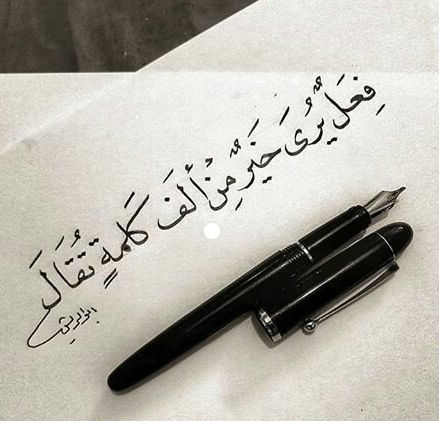 فِعَلٌ يُرَى خَيَرٌ مِنْ أَلفَ كَلمةٍ تقَالَ